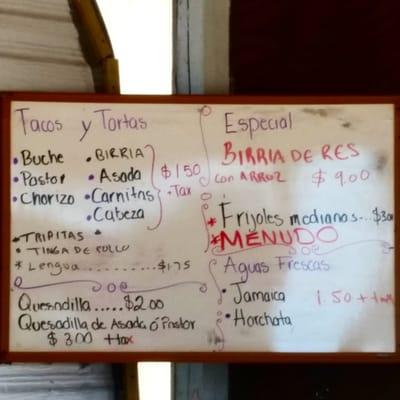 Tacos y Tortas
• Buche
• Pastor
• Chorizo
• BIRRIA
• Asada
• Carnitas
• Cabeza
$1.50
+ Tax
* TRIPITAS *
* TINGA DE POLLO
* Lengua..........$1.75
Quesadilla.....$2.00
Quesadilla de Asada ó Pastor
$3.00 +tax
Especial
BIRRIA DE RES
con ARROZ $9.00
* Frijoles medianos...$3.00
* MENUDO
Aguas Frescas
• Jamaica
• Horchata
1.50 + tax